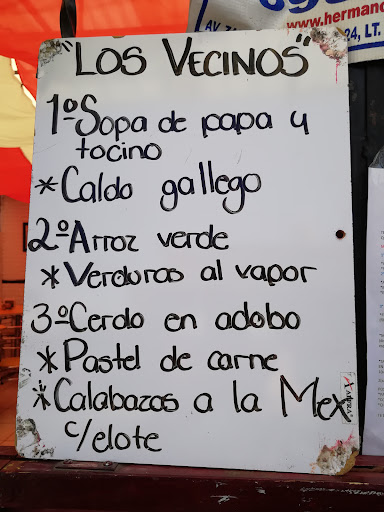 www.hermano
"LOS VECINOS"
24, LT.
1º Sopa de papa y
tocino
* Caldo gallego
2º Arroz verde
* Verduras al vapor
3º Cerdo en adobo
* Pastel de carne
* Calabazas a la Mex
c/elote